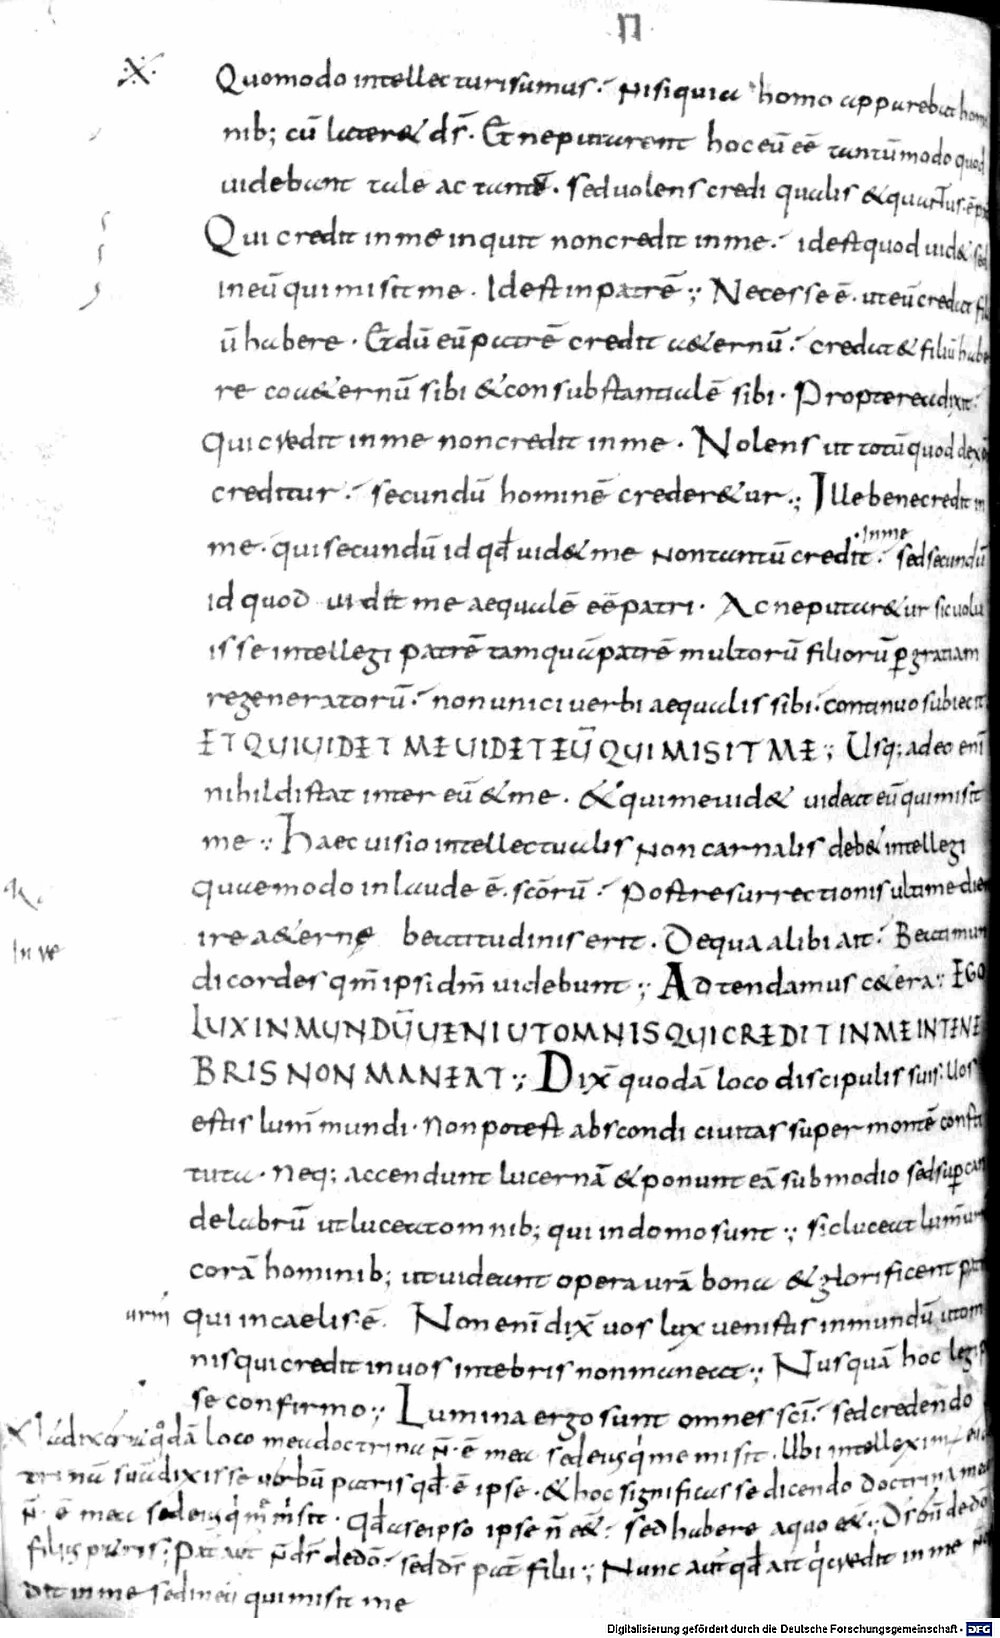 Quomodo intellecturi sumus? Nisi quia homo apparebat homi
nib; cũ later& ds̄. Et ne putarent hoc eũ eē tantũmodo quod
uidebant tale ac tantũ. sed uolens credi qualis & quantus ē
Qui credit in me inquit non credit in me. id est quod uid& sed
in eũ qui misit me. Id est in patrē; Necesse ē. ut eũ credat fili
ũ habere. Et dũ eũ patrē credit a&ernũ. credat & filiũ habe
re coa&ernũ sibi & consubstantialē sibi. Propterea dixit.
Qui credit in me non credit in me. Nolens ut totũ quod de xp̄o
creditur. secundũ hominē creder&ur; Ille bene credit in
me. qui secundũ id qđ uid& me non tantũ credit. sed secundũ
in me
id quod uidit me aequalē eē patri. Ac ne putar&ur sic uolu
isse intellegi patrē tamquã patrē multorũ filiorũ p gratiam
regeneratorũ. non unici uerbi aequalis sibi. continuo subiecit
ET QUI UIDET ME UIDET EŨ QUI MISIT ME; Usq; adeo enī
nihil distat inter eũ & me. & qui me uid& uideat eũ qui misit
me; Haec uisio intellectualis non carnalis deb& intellegi
quae modo in laude ē. scōrũ. Post resurrectionis ultime diem
ire a&erne beatitudinis erit. De qua alibi ait. Beati mun
In ue
di cordes qm̄ ipsi dm̄ uidebunt; Adtendamus c&era; EGO
LUX IN MUNDŨ UENI UT OMNIS QUI CREDIT IN ME IN TENE
BRIS NON MANEAT; Dix̄ quodã loco discipulis suis. Uos
estis lum̄ mundi. Non potest abscondi ciuitas super montē consti
tuta. Neq; accendunt lucernã & ponunt eã sub modio sed sup can
delabrũ ut luceat omnib; qui in domo sunt; sic luceat lum̄ ur̄m
corã hominib; ut uideant opera ur̄a bona & glorificent patrē
ur̄m qui in caelis ē. Non enī dix̄ uos lux uenistis in mundũ ut om
nis qui credit in uos in tebris non maneat; Nusquã hoc legis
se confirmo; Lumina ergo sunt omnes scī. sed credendo
quodã loco mea doctrina n̄. ē mea sed eius q̇ me misit. Ubi intelleximꝰ eũ
suã dixisse uerbũ patris qđ. ē ipse. & hoc significasse dicendo doctrina mea
n̄. ē mea sed eius q̇ me misit. qđ a se ipso ipse n̄ e&. sed habere a quo e&; Ds̄ de dō
filius patris; Pat aut n̄ ds̄ de dō. sed ds̄ pat filii; Nunc aut qđ ait q̇ credit in me n̄
dit in me sed in eũ qui misit me